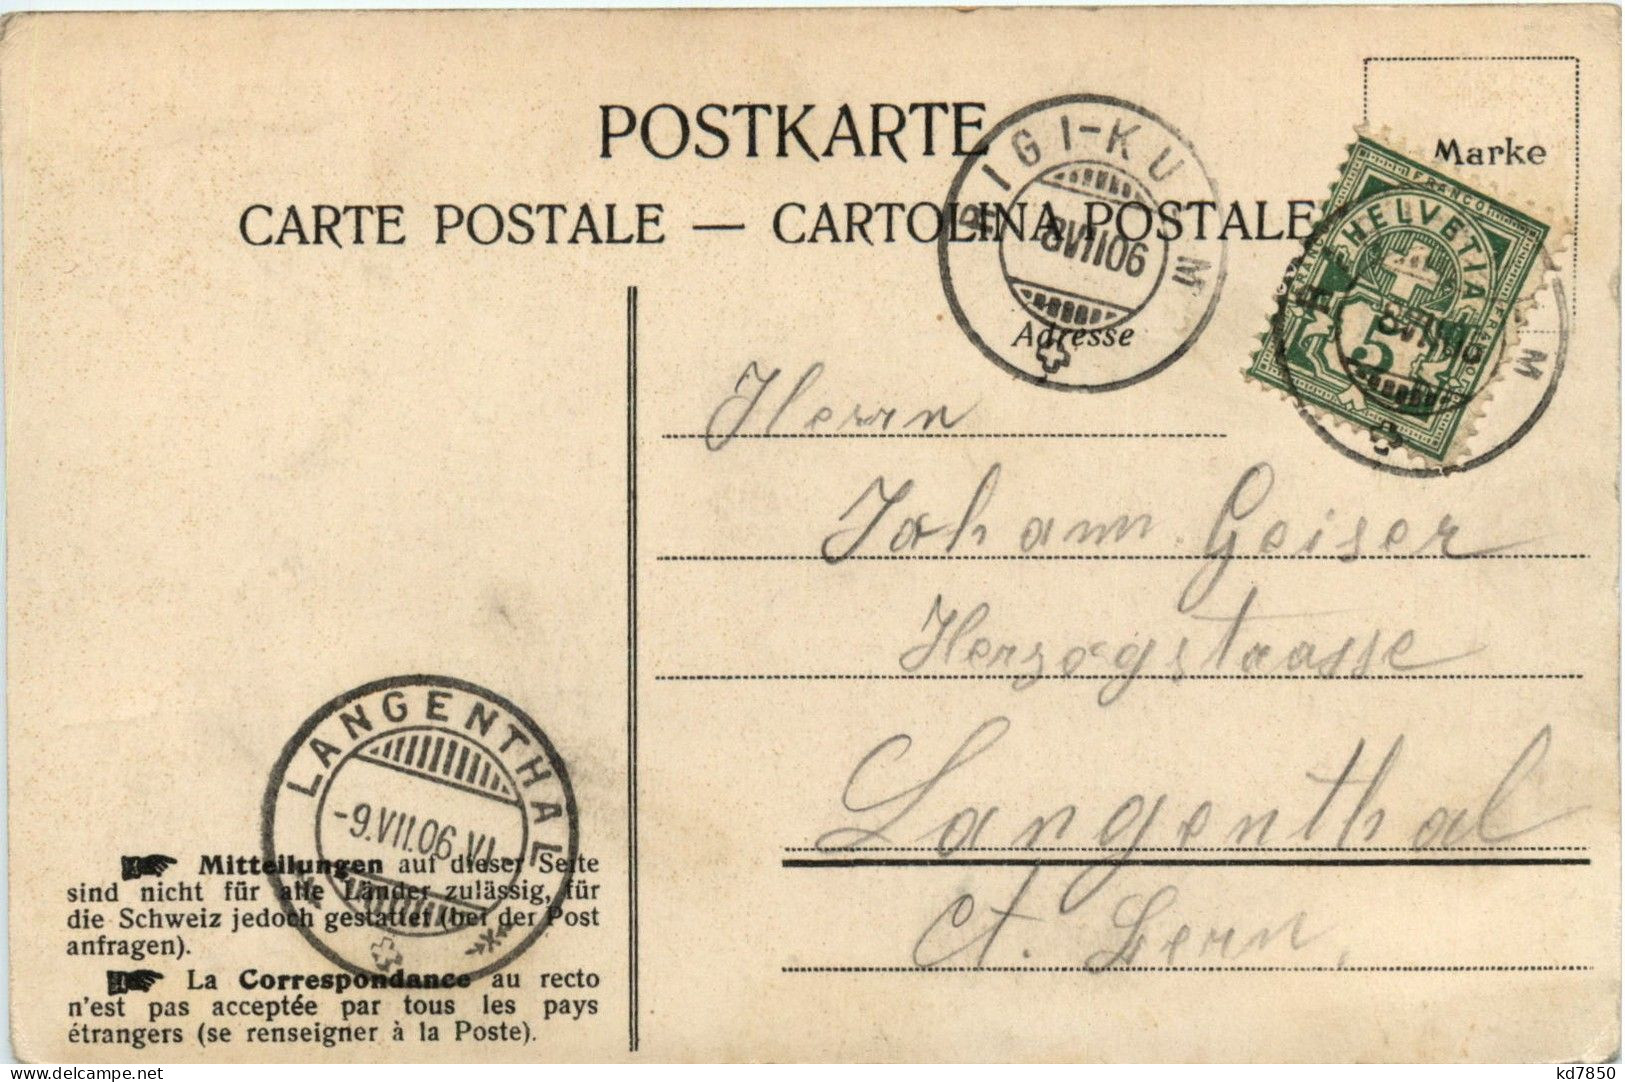 POSTKARTE
CARTE POSTALE — CARTOLINA POSTALE
Marke
RIGI-KULM
8VII06
FRANCO HELVETIA FRANCO FRANCO
5
8VII06
M
Adresse
Herrn
Johann Geiser
Herzogstrasse
Langenthal
Ct. Bern.
LANGENTHAL
-9.VII.06.VI-
Mitteilungen auf dieser Seite
sind nicht für alle Länder zulässig, für
die Schweiz jedoch gestattet (bei der Post
anfragen).
La Correspondance au recto
n'est pas acceptée par tous les pays
étrangers (se renseigner à la Poste).
delcampe.net
kd7850